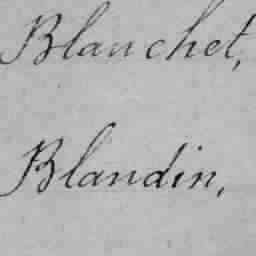 Blanchet,
Blandin,